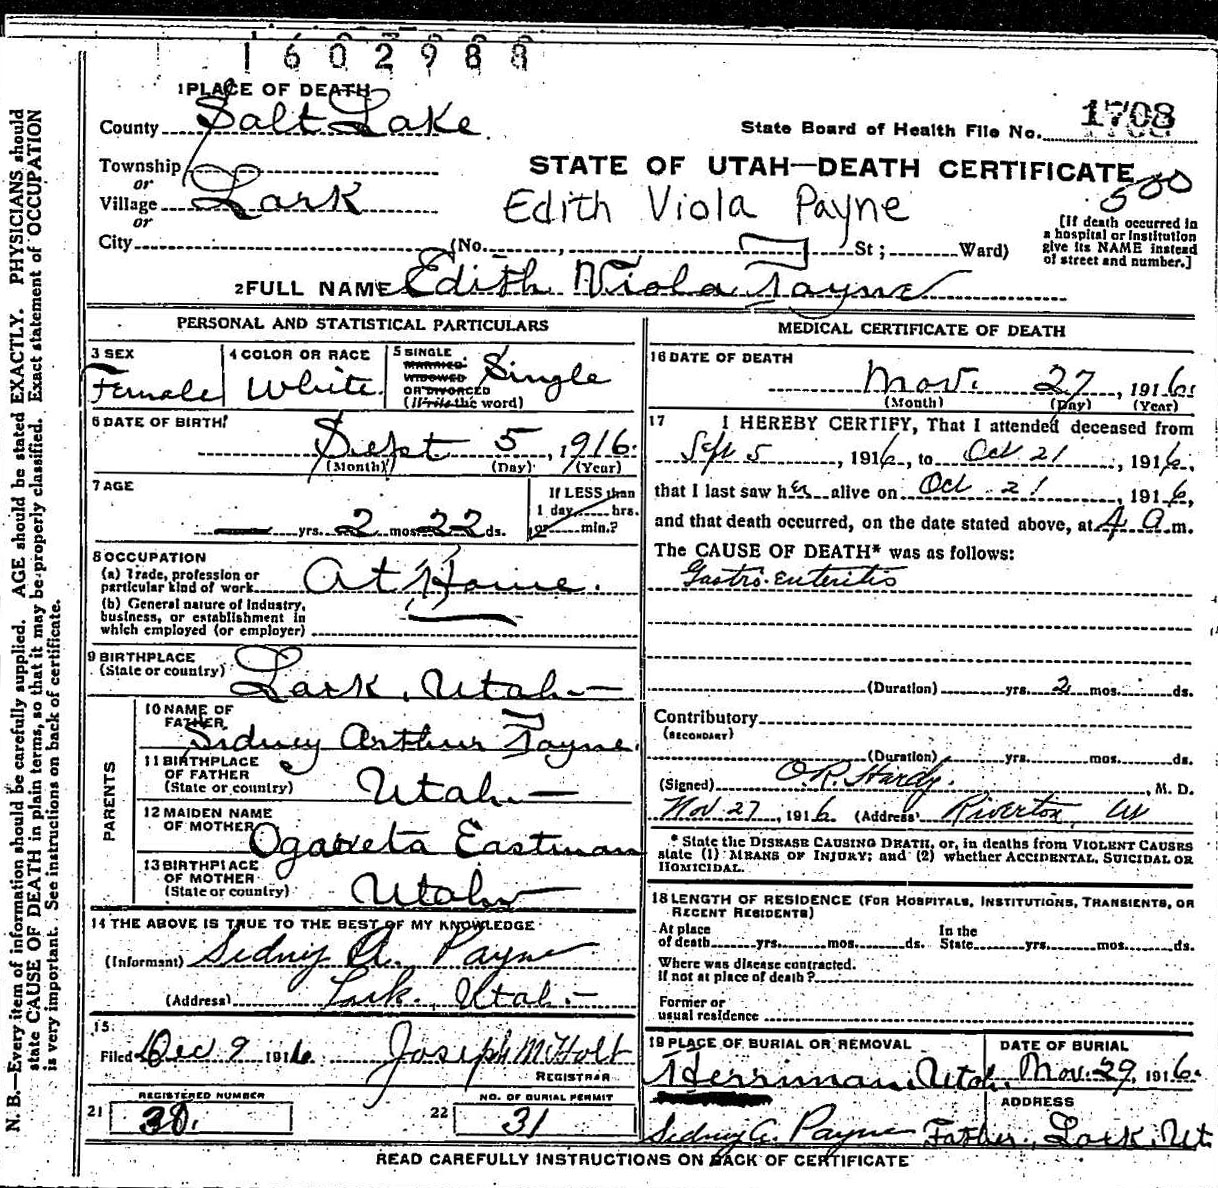 1602988
1 PLACE OF DEATH
County Salt Lake
State Board of Health File No. 1708
Township
or
Village Lark
or
STATE OF UTAH—DEATH CERTIFICATE
500
Edith Viola Payne
City (No. , St; Ward)
[If death occurred in
a hospital or institution
give its NAME instead
of street and number.]
2 FULL NAME Edith Viola Payne
PERSONAL AND STATISTICAL PARTICULARS
3 SEX
Female
4 COLOR OR RACE
White
5 SINGLE
MARRIED
WIDOWED
OR DIVORCED
(Write the word)
Single
6 DATE OF BIRTH
Sept 5, 1916
(Month) (Day) (Year)
7 AGE
— yrs. 2 mos. 22 ds.
If LESS than
1 day, hrs.
or min.?
8 OCCUPATION
(a) Trade, profession or
particular kind of work At Home.
(b) General nature of industry,
business, or establishment in
which employed (or employer)
9 BIRTHPLACE
(State or country) Lark, Utah—
PARENTS
10 NAME OF
FATHER
Sidney Arthur Payne.
11 BIRTHPLACE
OF FATHER
(State or country) Utah—
12 MAIDEN NAME
OF MOTHER Ogareta Eastman
13 BIRTHPLACE
OF MOTHER
(State or country) Utah—
14 THE ABOVE IS TRUE TO THE BEST OF MY KNOWLEDGE
(Informant) Sidney A. Payne
(Address) Lark, Utah.—
15
Filed Dec 9 1916 Joseph M Holt
REGISTRAR
21 REGISTERED NUMBER
30.
22 NO. OF BURIAL PERMIT
31
MEDICAL CERTIFICATE OF DEATH
16 DATE OF DEATH
Nov. 27, 1916.
(Month) (Day) (Year)
17 I HEREBY CERTIFY, That I attended deceased from
Sept 5, 1916, to Oct 21, 1916,
that I last saw her alive on Oct 21, 1916,
and that death occurred, on the date stated above, at 4 a m.
The CAUSE OF DEATH* was as follows:
Gastro-enteritis
(Duration) yrs. 2 mos. ds.
Contributory
(SECONDARY)
(Duration) yrs. mos. ds.
(Signed) O.R. Hardy. , M. D.
Nov 27, 1916 (Address) Riverton, Ut
* State the DISEASE CAUSING DEATH, or, in deaths from VIOLENT CAUSES
state (1) MEANS OF INJURY; and (2) whether ACCIDENTAL, SUICIDAL OR
HOMICIDAL.
18 LENGTH OF RESIDENCE (FOR HOSPITALS, INSTITUTIONS, TRANSIENTS, OR
RECENT RESIDENTS)
At place
of death yrs. mos. ds. In the
State yrs. mos. ds.
Where was disease contracted.
if not at place of death?
Former or
usual residence
19 PLACE OF BURIAL OR REMOVAL
Herriman, Utah.
DATE OF BURIAL
Nov. 29, 1916.
ADDRESS
Sidney A. Payne Father, Lark, Ut
READ CAREFULLY INSTRUCTIONS ON BACK OF CERTIFICATE
N. B.—Every item of information should be carefully supplied. AGE should be stated EXACTLY. PHYSICIANS should
state CAUSE OF DEATH in plain terms, so that it may be properly classified. Exact statement of OCCUPATION
is very important. See instructions on back of certificate.